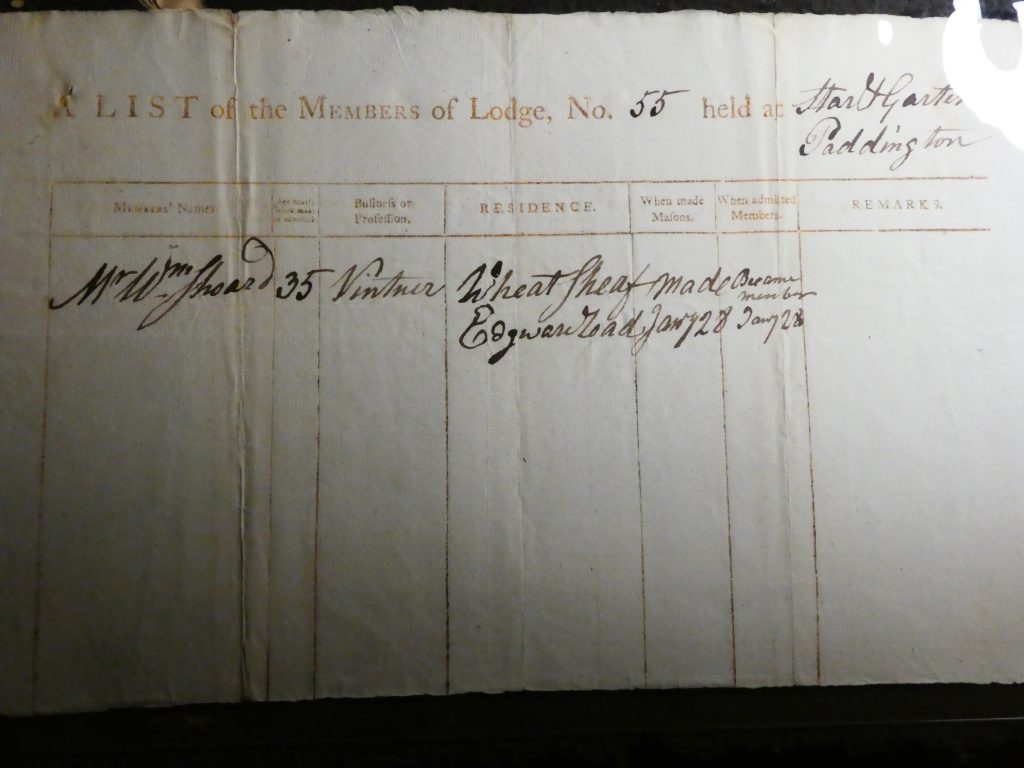 A LIST of the MEMBERS of Lodge, No. 55 held at Star & Garter
Paddington
MEMBERS' Names. Age nearly when made or admitted. Business or Profession. RESIDENCE. When made Masons. When admitted Members. REMARKS.
Mr. Wm. Shoard 35 Vintner Wheat Sheaf made Became member
Edgware Road Jany 28 Jany 28